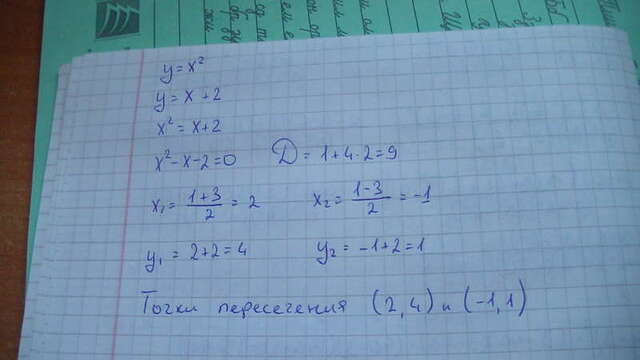 y = x²
y = x + 2
x² = x + 2
x² - x - 2 = 0 D = 1 + 4 · 2 = 9
x₁ = (1 + 3)/2 = 2 x₂ = (1 - 3)/2 = -1
y₁ = 2 + 2 = 4 y₂ = -1 + 2 = 1
Точки пересечения (2, 4) и (-1, 1)